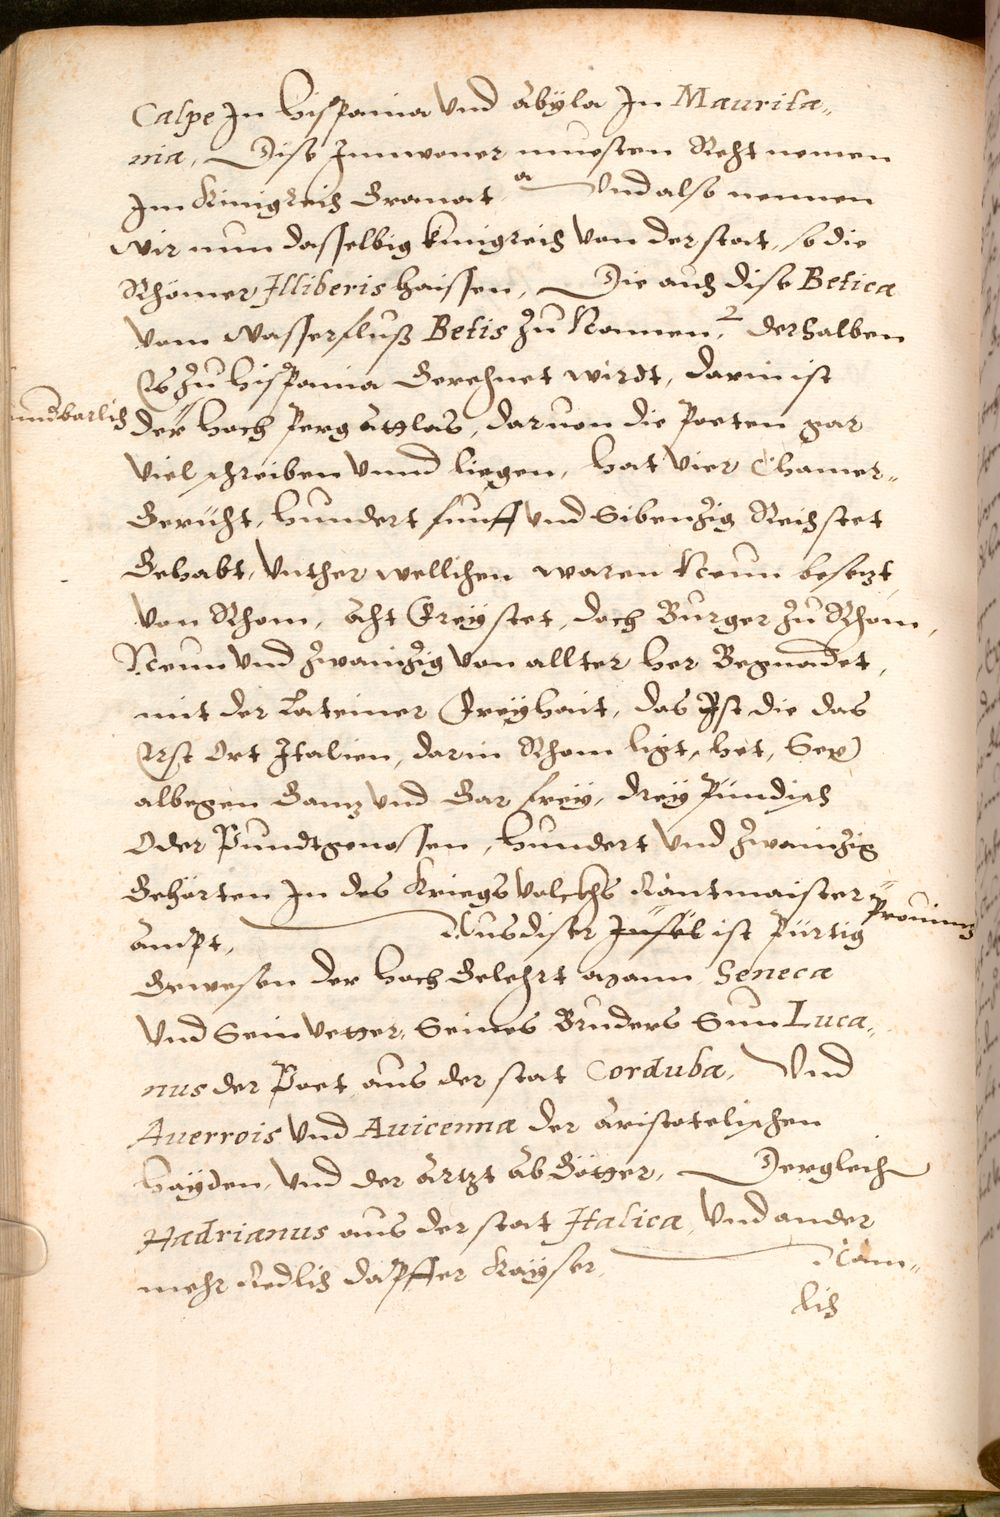 Calpe In Hispania Vnd Abÿla In Maurita„
nia, Dise Innwoner muesten Reht nemen
Im Kinigreich Granat a Vnd also nennen
wir nun dasselbig kunigreich von der stat, so die
Rhömer Illiberis haissen, Die auch dise Betica
vom wasserfluß Betis Zu Namen, 2 derhalben
Es Zu Hispania Gerehnet wirdt, darin ist
wundbarlich
der hoch Perg Attlas, daruon die Poeten gar
Viel schreiben Vnnd liegen, hat Vier Chamer„
Gericht, hundert funff Vnd Sibenzig Reichstet
Gehabt, Vnther wellichen waren Neun besezt
Von Rhom, Acht Freystet, doch Burger Zu Rhom,
Neun Vnd Zwainzig Von allter her Begnadet,
mit der Lateiner Freÿhait, das Ist die das
Erst Ort Italien, darin Rhom ligt, het, Sex
albegen Ganz Vnd Gar freÿ, dreÿ Pündisch
Oder Pundtgenossen, hundert Vnd Zwainzig
Gehörten In des Kriegs Volckhs Rantmaister
Ampt, Aus diser Insel ist Pürtig
Prouinz
Gewesen der hoch Gelehrt mann Seneca
Vnd Sein Vetter, Seines Bruders Sun Luca„
nus der Poet aus der stat Corduba, Vnd
Auerrois Vnd Auicenna der Aristotelischen
Haÿden, Vnd der Artzt Abgötter, Dergleich
Hadrianus aus der stat Italica, Vnd ander
mehr Redlich dapffer Kaÿser, Nam„
lich